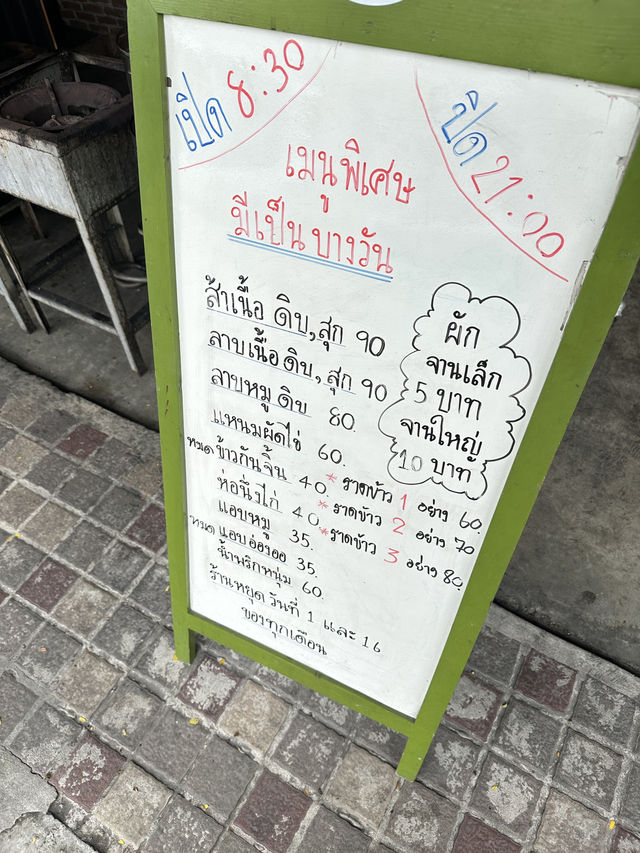 เปิด 8:30
ปิด 21:00
เมนูพิเศษ
มีเป็นบางวัน
ส้าเนื้อ ดิบ, สุก 90
ลาบเนื้อ ดิบ, สุก 90
ลาบหมู ดิบ 80
แหนมผัดไข่ 60.
หมด ข้าวกันจิ้น 40
ห่อนึ่งไก่ 40
แอบหมู 35.
หมด แอบอ่องออ 35.
น้ำพริกหนุ่ม 60.
ร้านหยุด วันที่ 1 และ 16
ของทุกเดือน
ผัก
จานเล็ก
5 บาท
จานใหญ่
10 บาท
* ราดข้าว 1 อย่าง 60.
* ราดข้าว 2 อย่าง 70
* ราดข้าว 3 อย่าง 80.